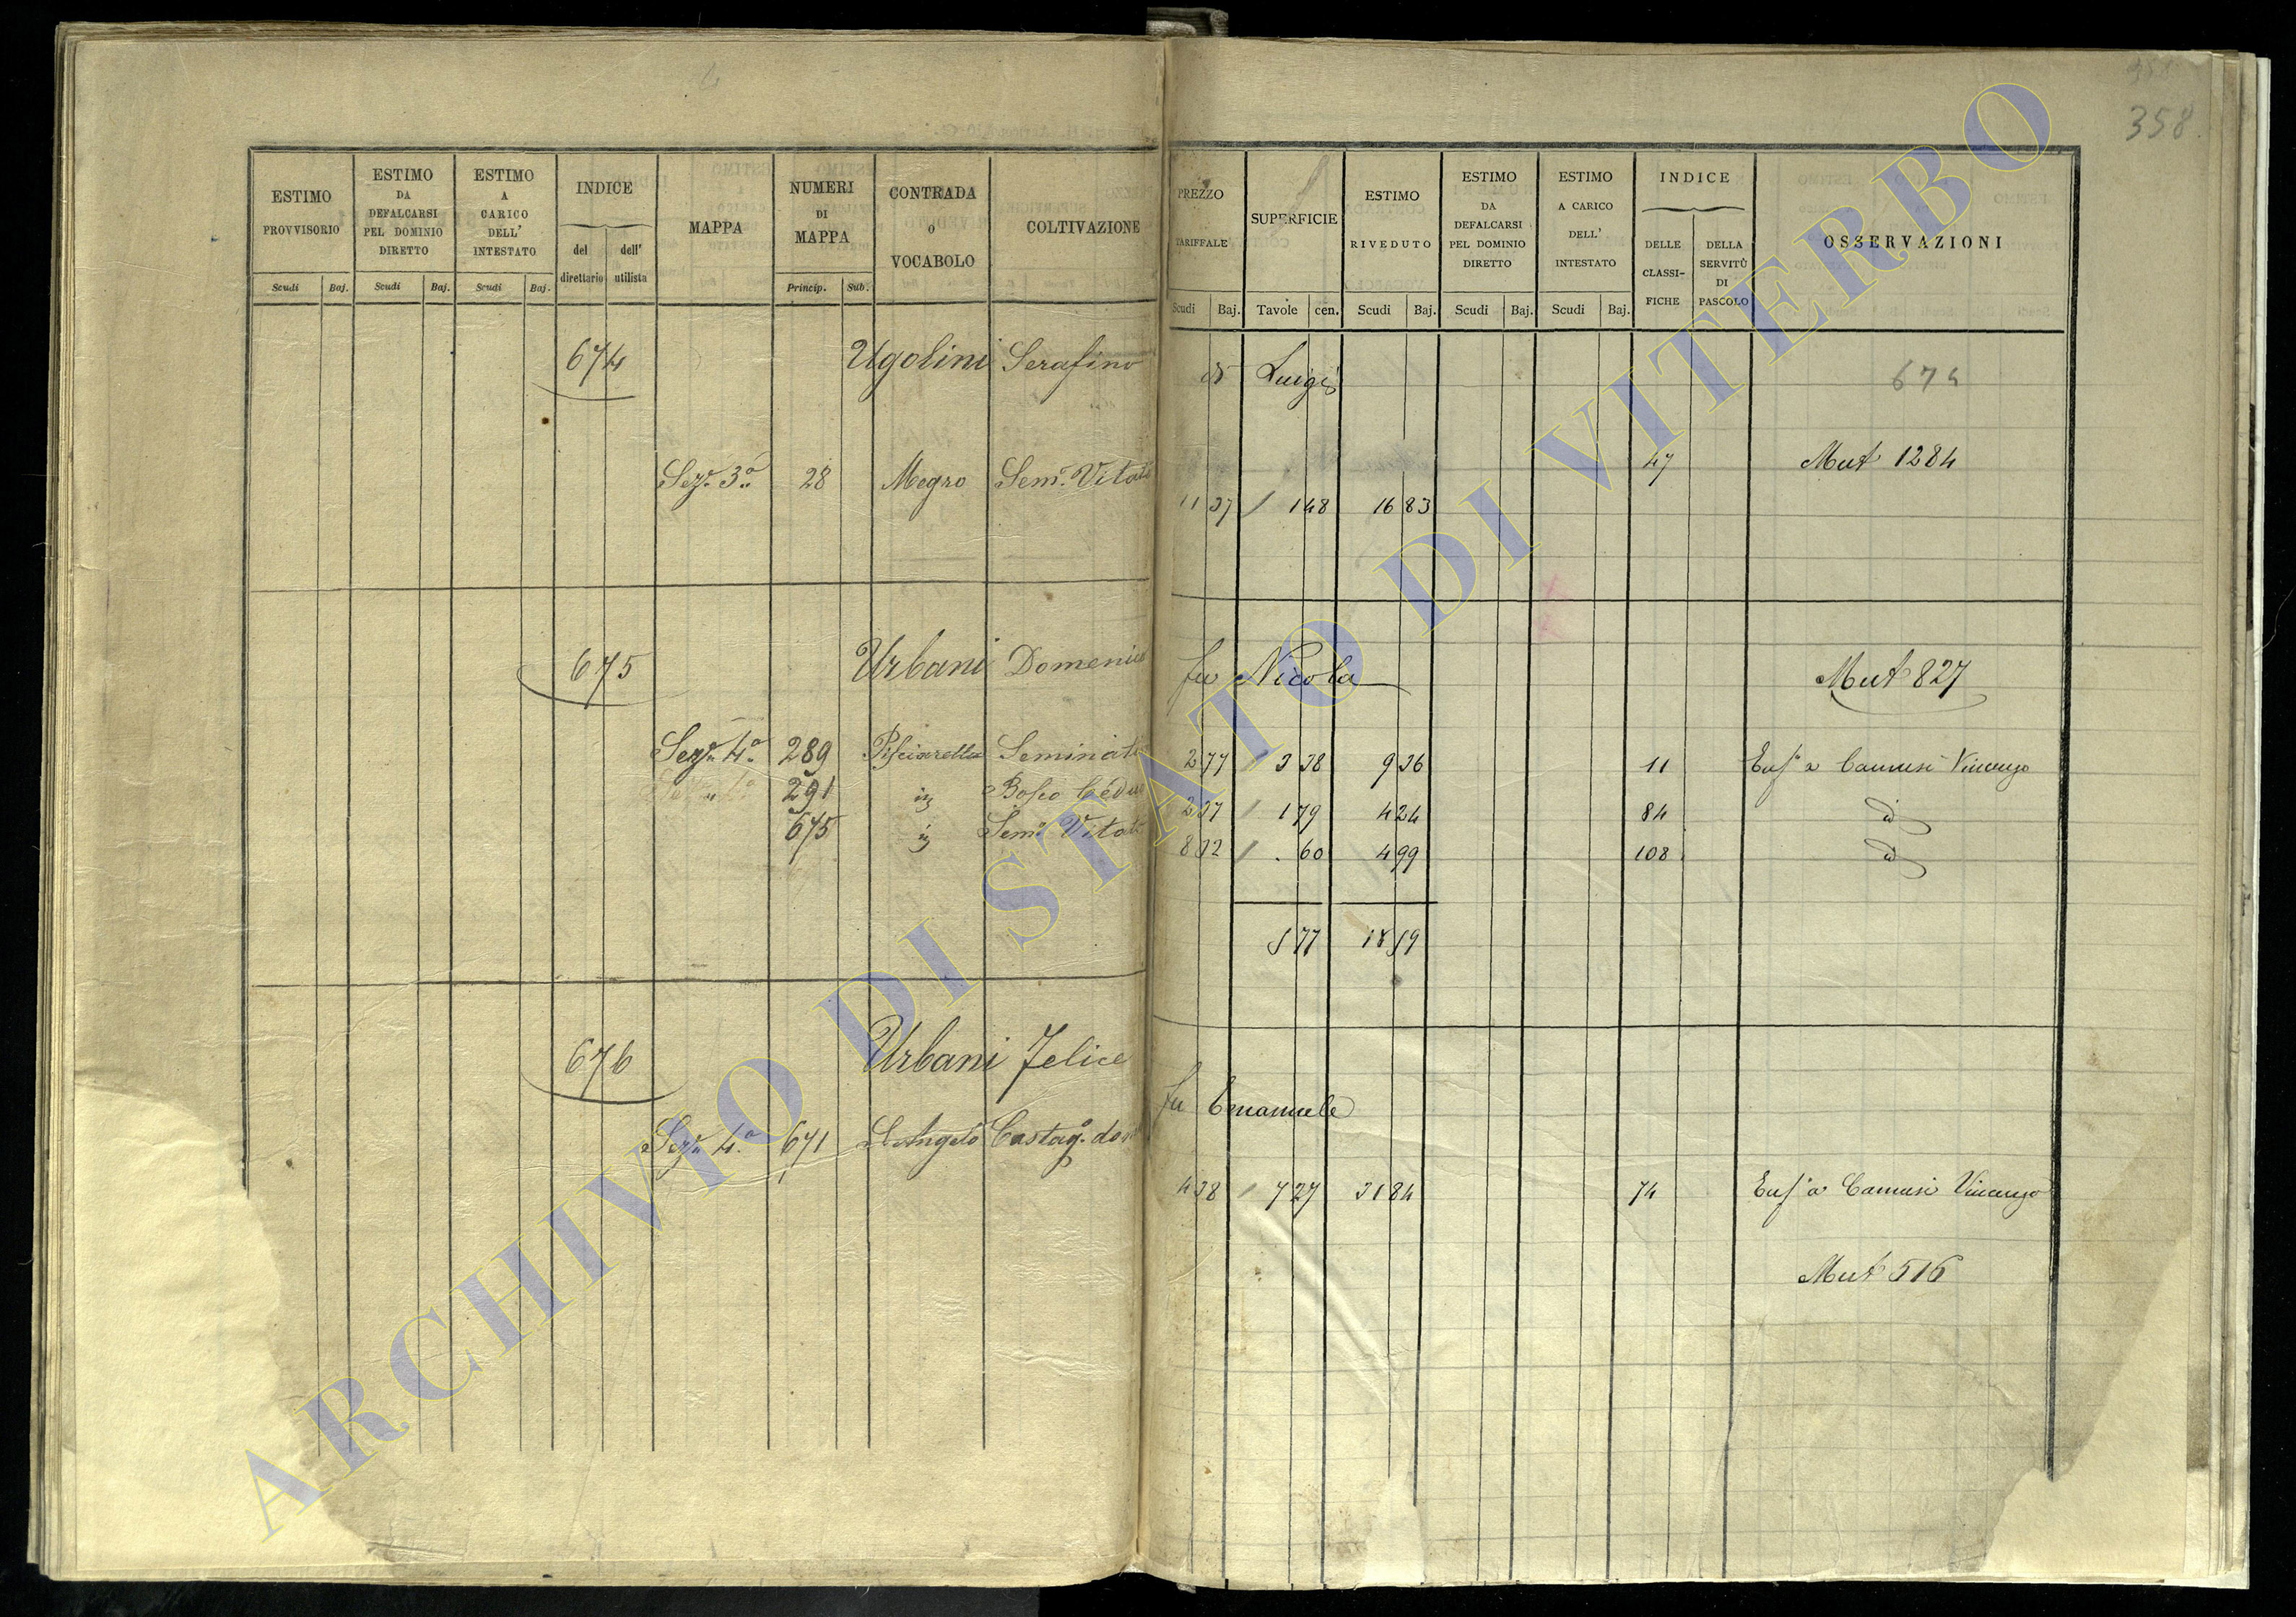 358.
ESTIMO PROVVISORIO
ESTIMO DA DEFALCARSI PEL DOMINIO DIRETTO
ESTIMO A CARICO DELL' INTESTATO
INDICE
del direttario
dell' utilista
MAPPA
NUMERI DI MAPPA
CONTRADA O VOCABOLO
COLTIVAZIONE
Scudi Baj. Scudi Baj. Scudi Baj. Princip. Sub.
PREZZO TARIFFALE
SUPERFICIE
ESTIMO RIVEDUTO
ESTIMO DA DEFALCARSI PEL DOMINIO DIRETTO
ESTIMO A CARICO DELL' INTESTATO
INDICE
DELLE CLASSIFICHE
DELLA SERVITÙ DI PASCOLO
OSSERVAZIONI
Scudi Baj. Tavole cen. Scudi Baj. Scudi Baj. Scudi Baj.
674 Ugolini Serafino di Luigi 674
Mut 1284
Sezne 3a 28 Magro Semo Vitato 11 37 1 48 16 83 47
675 Urbani Domenico fu Nicola Mut 827
Sezne 4a 289 Pisciarella Seminato 2 77 3 38 9 36 11 Enfa a Camusi Vincenzo
291 id Bosco Ceduo 2 37 1 79 4 24 84 id
675 id Semo Vitato 8 32 . 60 4 99 108 id
5 77 18 59
676 Urbani Felice fu Emanuele
Sezne 4a 671 S. Angelo Castago. 4 38 7 27 31 84 74 Enfa a Camusi Vincenzo
Mut 516
ARCHIVIO DI STATO DI VITERBO